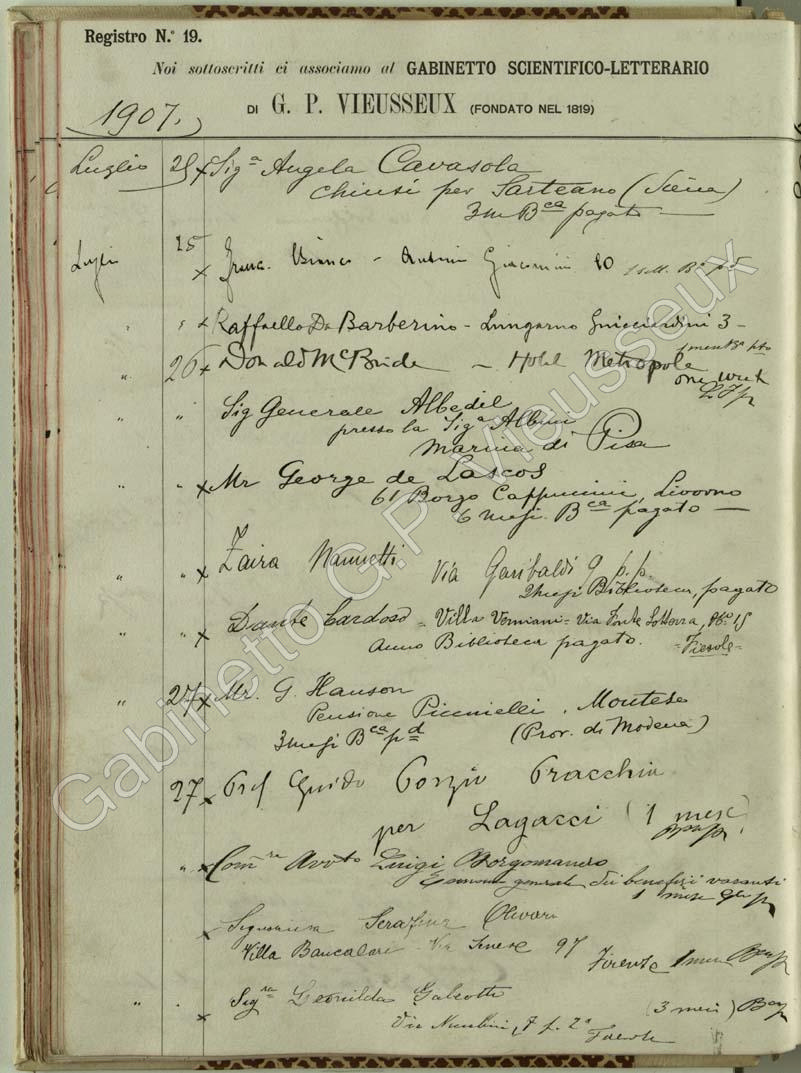 Registro N.º 19.
Noi sottoscritti ci associamo al GABINETTO SCIENTIFICO-LETTERARIO
DI G. P. VIEUSSEUX (FONDATO NEL 1819)
1907.
Luglio 25 x Sigª Angela Cavasola
Chiusi per Sarteano (Siena)
3 m Bca pagato —
Luglio 25 x Franc. Bianco - Antonio Giacomini 10
" " x Raffaello Da Barberino - Lungarno Guicciardini 3 -
" 26 x Donald McBride - Hotel Metropole
one week
" " Sig Generale Albedil
presso la Sigª Albini
Marina di Pisa
" " x Mr George de Lascos
61 Borgo Cappuccini, Livorno
6 mesi Bca pagato —
" " x Zaira Nannetti Via Garibaldi 9 p.p.
2 mesi Biblioteca, pagato
" " x Dante Cardoso = Villa = Via Fonte Sotterra, 15
Anno Biblioteca pagato. = Fiesole =
" 27 x Mr. G. Hanson
Pensione Piccinelli, Montese
3 mesi Bca pd (Prov. di Modena)
27 x Prof Guido Porzio
per Lagacci (1 mese)
" x Commre Avvto Luigi Borgomanero
Economo generale dei benefizi vacanti
1 mese
x Signorina Serafina Olivari
Villa Bancalari Via Senese 97
Firenze 1 mese
" x Sigra Leonilda Galeotti
(3 mesi)
Via 7 p. 2º
Gabinetto G.P. Vieusseux